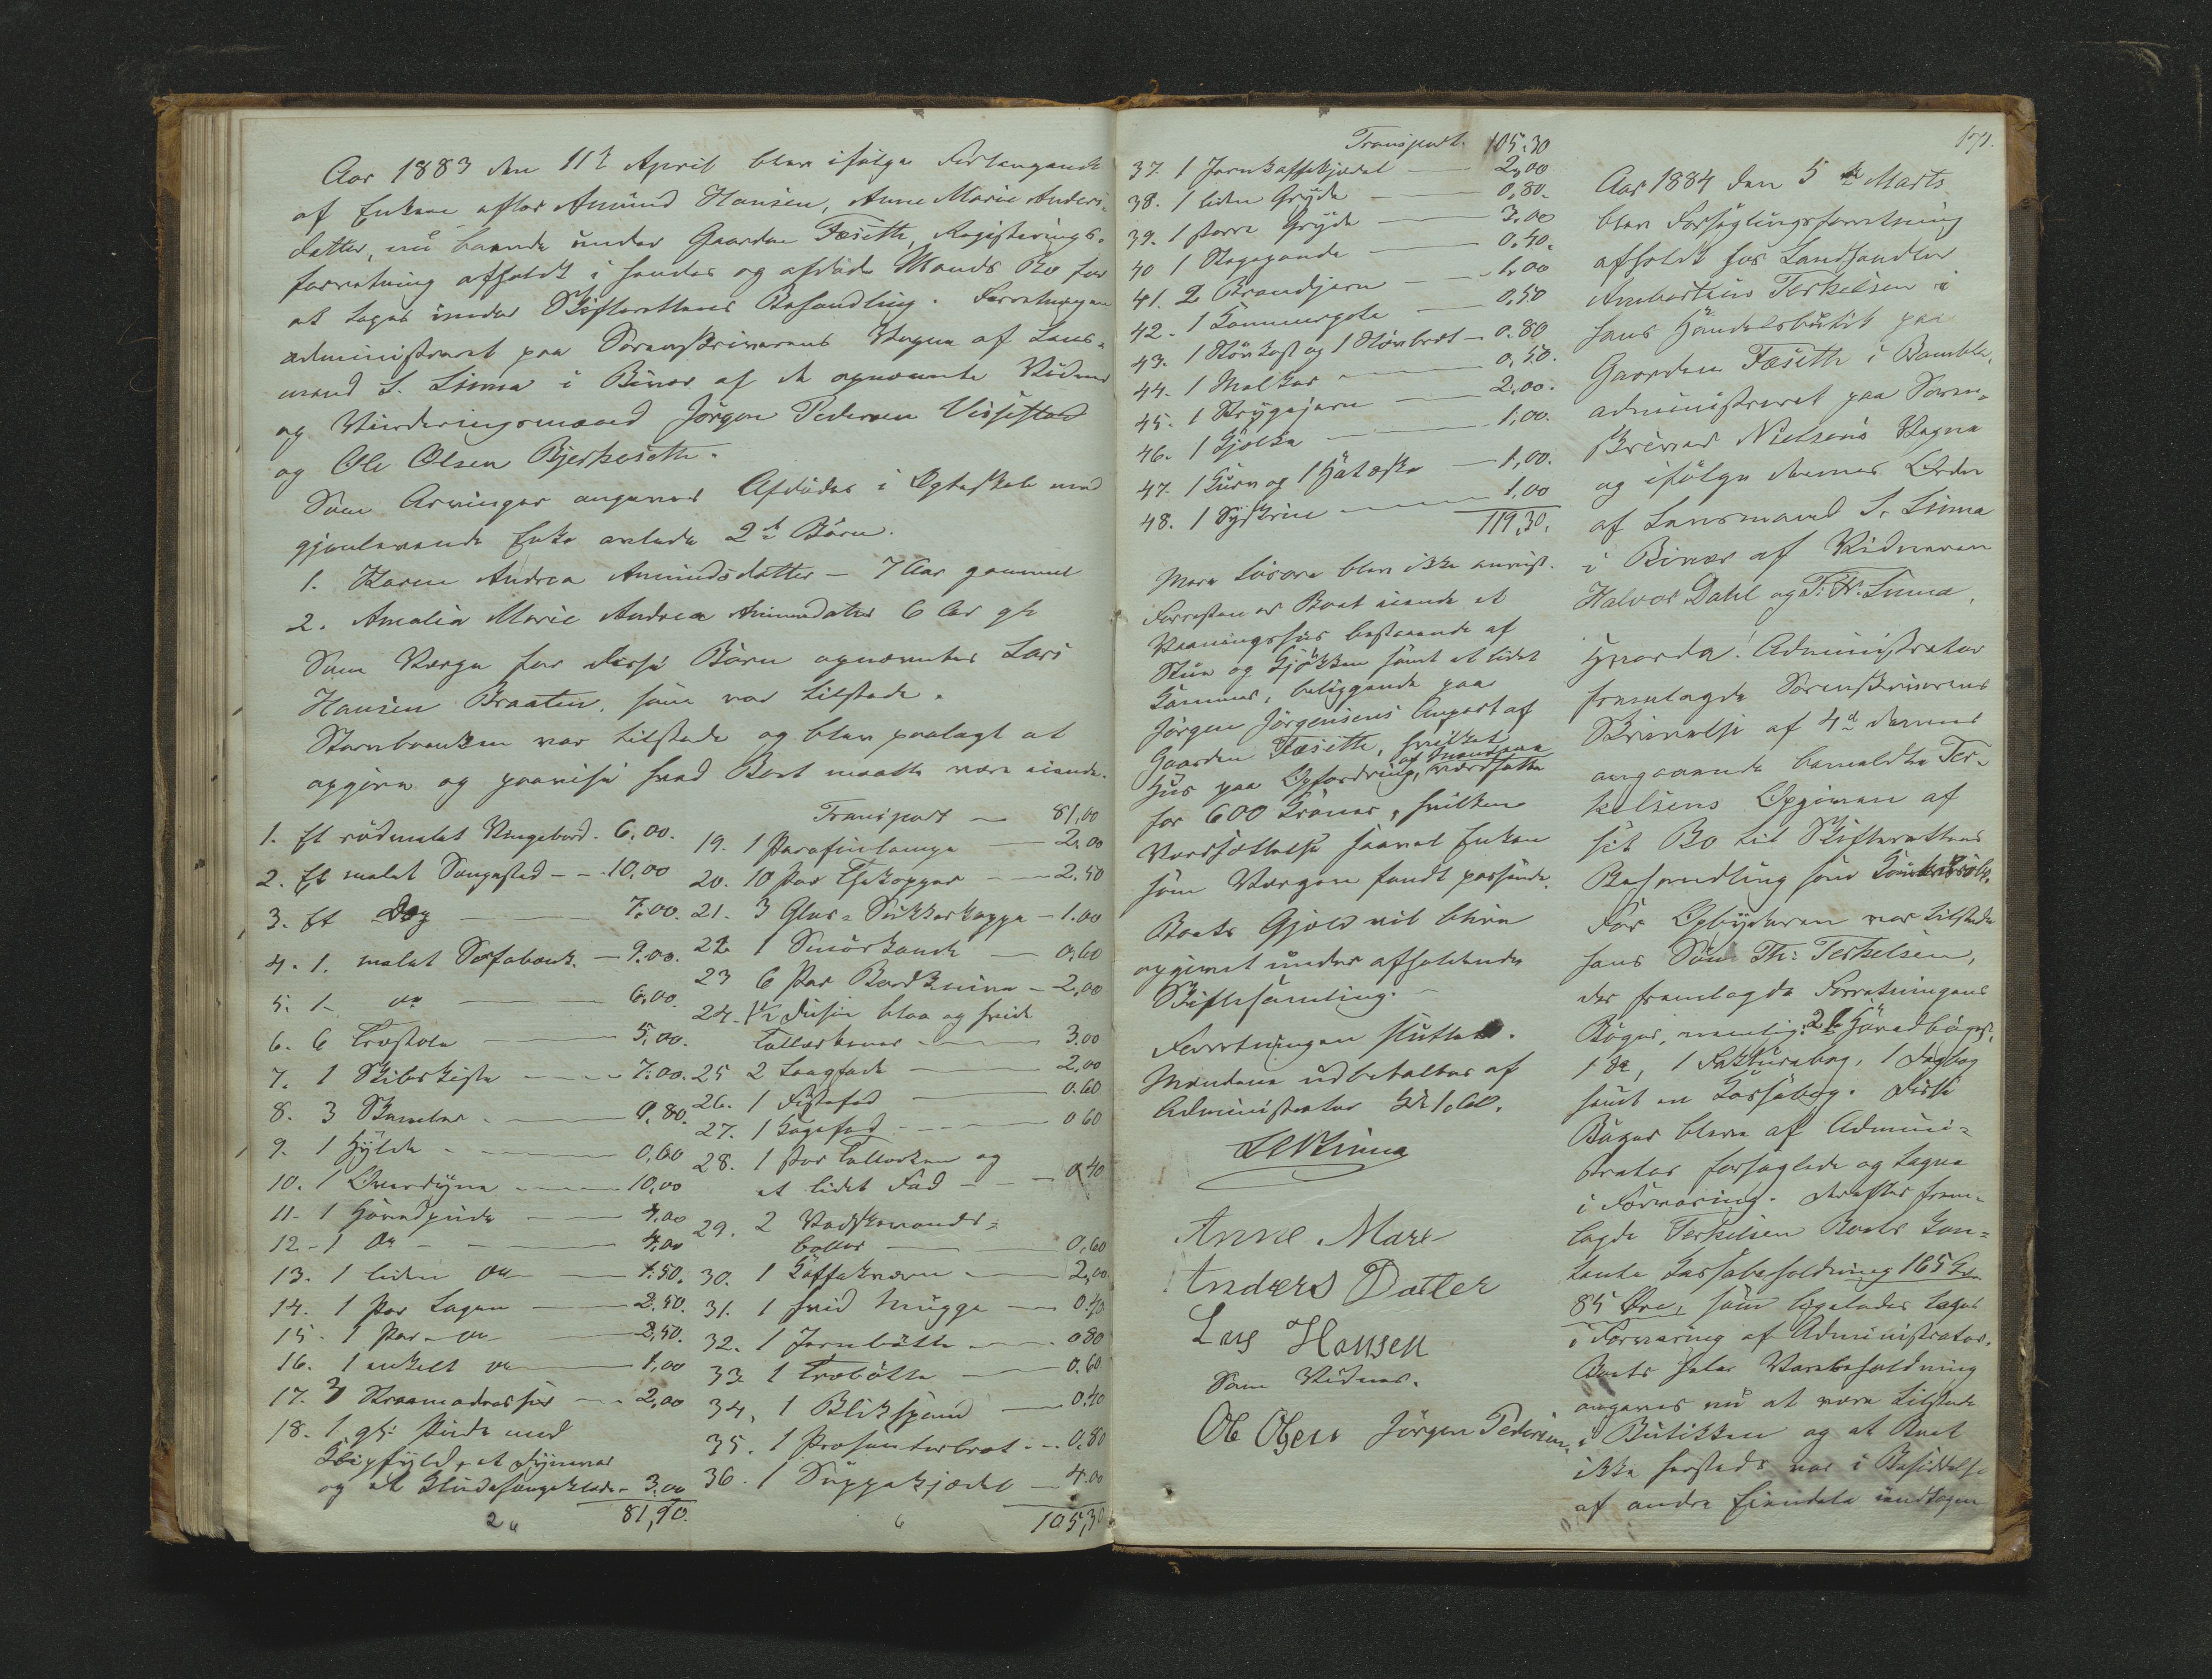 Aar 1883 den 11te April blev ifølge Forlangende
af Enken efter Amund Hansen, Anne Marie Anders-
datter, nu boende under Gaarden Fæseth, Registrerings-
forretning afholdt i hendes og afdøde Mands Bo for
at tages under Skifterettens Behandling. Forretningen
administreret paa Sorenskriverens Vegne af Lens-
mand S. Linna i Bivær af de opnævnte Vidner
og Vurderingsmænd Jørgen Pedersen Vissestad
og Ole Olsen Bjerkeseth.
Som Arvinger angaves Afdødes i Ægteskab med
gjenlevende Enke avlede 2de Børn.
1. Karen Andrea Amundsdatter - 7 Aar gammel
2. Amalia Marie Andrea Amundsdatter 6 Aar gl
Som Værge for disse Børn opnævntes Lars
Hansen Braaten, som var tilstede.
Stervboenken var tilstede og blev paalagt at
opgive og paavise hvad Boet maatte være eiende.
1. Et rødmalet Vingebord. 6,00.
2. Et malet Sengested - - 10,00
3. Et Do 7,00.
4. 1. malet Sofabænk. - 9.00.
5. 1 do 6,00
6. 6 Træstole 5,00.
7. 1 Skibskiste 7.00.
8. 3 Skamler 0,80.
9. 1 Hylde 0,60
10. 1 Overdyne 10,00
11. 1 Hovedpude 4,00
12. 1 do 4,00
13. 1 liden do 1.50.
14. 1 Par Lagen 2.50.
15. 1 Par do 2,50.
16. 1 enkelt do 1,00
17. 3 Straamadrasser 2,00
18. 1 gl: Pude med
fyld, et Dynevar
og et Kludesengeklæde - 3.00
81,90.
Transport 81,00
19. 1 Parafinlampe 2,00
20. 10 Par Thekopper 2.50
21. 3 Glas-Sukkerkopper - 1.00
22 1 Smørkande 0,60
23 6 Par Bordknive - 2,00
24. 1½ Dusin blaa og hvide
Tallerkener 3.00
25 2 Langfade 2,00
26. 1 Fiskefad 0.60
27. 1 Kagefad 0 60
28. 1 Par Tallerken og
et lidet Fad 0,40
29. 2 Vadskevands-
boller 0,60
30. 1 Kaffekværn 2,00
31. 1 hvid Mugge 0.40
32. 1 Jernbøtte 0 80
33. 1 Træbøtte 0.60
34. 1 Blikspand 0.40
35. 1 Præsenterbræt 0.80
36. 1 Suppekjædel 4.00
105,30
Transport. 105.30
37. 1 Jernkaffekjedel 2,00
38. 1 liden Gryde 0,80.
39. 1 større Gryde 3.00
40 1 Stegepande 0,40.
41. 2 Brandjern 1,00
42. 1 0,50
43. 1 Støvkost og 1 Støvbret - 0.80
44. 1 Melkar 0,50.
45. 1 Strygejern 2,00.
46. 1 Kjelke 1,00.
47. 1 Kurv og 1 Hatæske - 1,00.
48. 1 Syskrin 1,00
119,30.
Mere Løsøre blev ikke anvist.
Forresten er Boet eiende et
Vaaningshus bestaaende af
Stue og Kjøkken samt et lidet
Kammer, beliggende paa
Jørgen Jørgensens Anpart af
Gaarden Fæseth, hvilket
Hus paa Opfordring af Mændene værdsattes
for 600 Kroner, hvilken
Værdsættelse saavel Enken
som Værgen fandt passende.
Boets Gjæld vil blive
opgivet under afholdende
Skiftesamling.
Forretningen sluttet.
Mændene udbetaltes af
Administrator Kr 1,60.
S Linna
Anne Mare
Anders Datter
Lars Hansen
Som Vidner.
Ole Olsen Jørgen Pedersen.
171.
Aar 1884 den 5te Marts
blev Forseglingsforretning
afholdt hos Landhandler
Ambortius Terkelsen i
hans Handelsbutik paa
Gaarden Fæseth i Bamble,
administreret paa Soren-
skriver Nielsens Vegne
og ifølge dennes Ordre
af Lensmand S. Linna
i Bivær af Vidnerne
Halvor Dahl og T. H. Linna.
Hvorda: Administrator
fremlagde Sorenskriverens
Skrivelse af 4de dennes
angaaende bemeldte Ter-
kelsens Opgivan af
sit Bo til Skifterettens
Behandling som
For Opbyderen var tilstede
hans Søn Th: Terkelsen,
der fremlagde Forretningens
Bøger, nemlig: 2 Hovedbøger,
1 do, 1 Fakturabog, 1 Dagbog
samt en Kassabog. Disse
Bøger bleve af Admini-
strator forseglede og tagne
i Forvaring. Derefter frem-
lagde Terkelsen Boets kon-
tante Kassabeholdning 165 Kr.
85 Øre, som ligeledes toges
i Forvaring af Administrator.
Boets hele Varebeholdning
angaves nu at være tilstede
i Butikken og at Boet
ikke herstede var i Besiddelse
af andre Eiendele undtagen